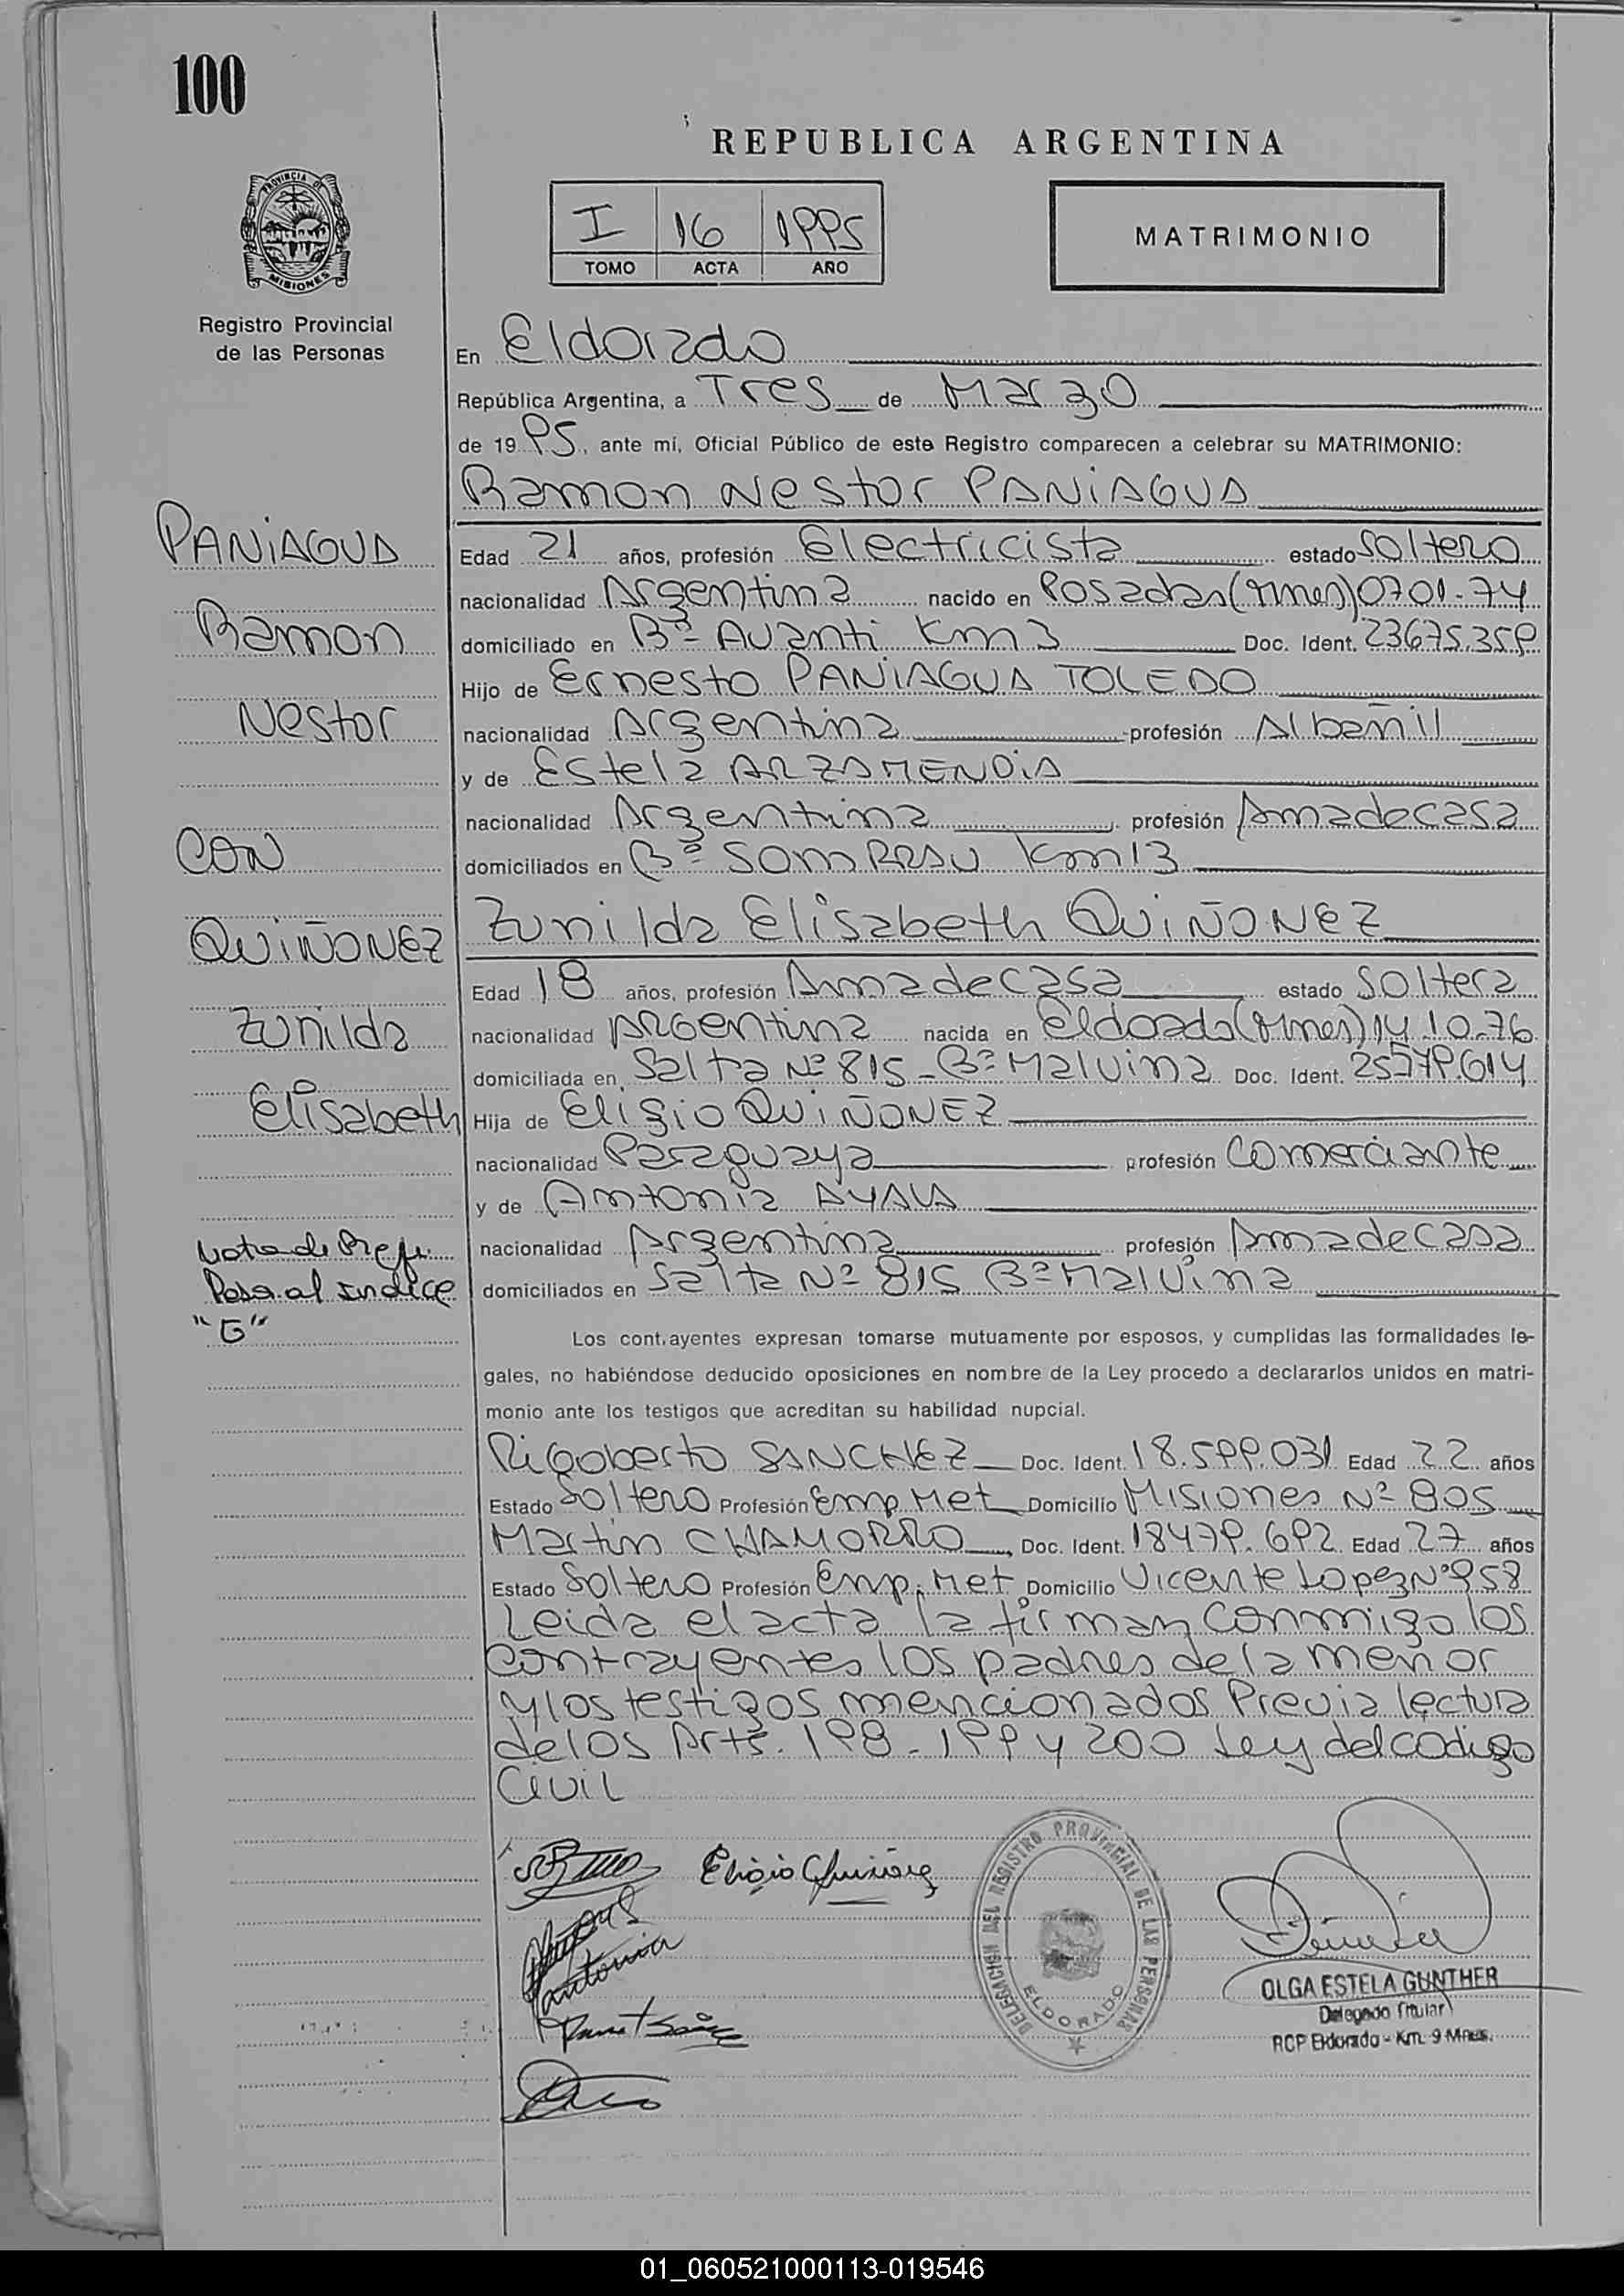 100
REPUBLICA ARGENTINA
PROVINCIA DE
MISIONES
I 16 1995
TOMO ACTA AÑO
MATRIMONIO
Registro Provincial
de las Personas
En Eldorado
República Argentina, a Tres de Marzo
de 1995, ante mi, Oficial Público de este Registro comparecen a celebrar su MATRIMONIO:
Ramon Nestor PANIAGUA
PANIAGUA
Ramon
Nestor
CON
QUIÑONEZ
Zunilda
Elisabeth
Nota de Refe.
Pasa al Indice
"G"
Edad 21 años, profesión Electricista estado Soltero
nacionalidad Argentina nacido en Posadas (Mnes) 07 01-74
domiciliado en Bº- Avanti Km 3 Doc. Ident. 23675.359
Hijo de Ernesto PANIAGUA TOLEDO
nacionalidad Argentina profesión Albañil
y de Estela ARZAMENDIA
nacionalidad Argentina profesión Ama de casa
domiciliados en Bº Km 13
Zunilda Elisabeth QUIÑONEZ
Edad 18 años, profesión Ama de casa estado Soltera
nacionalidad Argentina nacida en Eldorado (Mnes) 14.10.76
domiciliada en Salta Nº 815 - Bº Malvina Doc. Ident. 25.579.614
Hija de Eligio QUIÑONEZ
nacionalidad Paraguaya profesión Comerciante
y de Antonia AYALA
nacionalidad Argentina profesión Ama de casa
domiciliados en Salta Nº 815 Bº Malvina
Los contrayentes expresan tomarse mutuamente por esposos, y cumplidas las formalidades le-
gales, no habiéndose deducido oposiciones en nombre de la Ley procedo a declararlos unidos en matri-
monio ante los testigos que acreditan su habilidad nupcial.
Rigoberto SANCHEZ Doc. Ident. 18.599.031 Edad 22 años
Estado Soltero Profesión Emp. Met Domicilio Misiones Nº 805
Martin CHAMORRO Doc. Ident. 18479.692 Edad 27 años
Estado Soltero Profesión Emp. Met Domicilio Vicente Lopez Nº 958
Leida el acta la firman conmigo los
contrayentes los padres de la menor
y los testigos mencionados Previa lectura
de los Arts. 198-199 y 200 Ley del codigo
Civil
Eligio Quiñonez
Antonia
DELEGACION DEL REGISTRO PROVINCIAL DE LAS PERSONAS
ELDORADO
OLGA ESTELA GUNTHER
Delegado Titular
RCP Eldorado - Km. 9 Mnes.
01_060521000113-019546